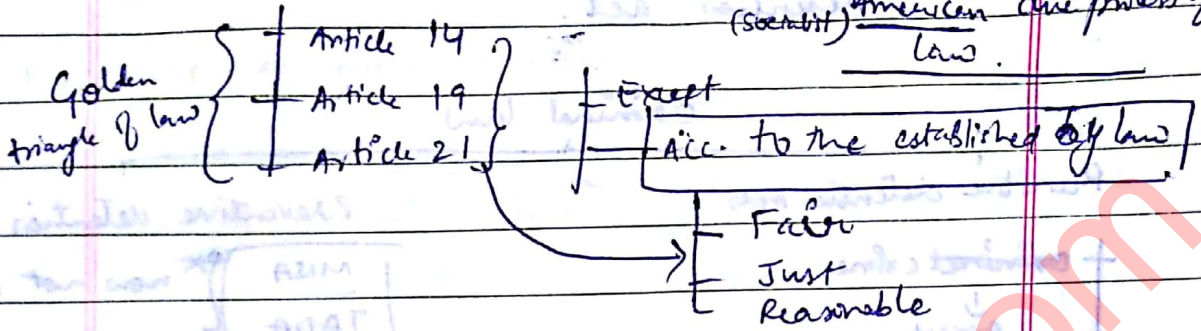 (Socialist) American due process of
law.
Golden
triangle of law
Article 14
Article 19
Article 21
Except
Acc. to the established by law
Fair
Just
Reasonable